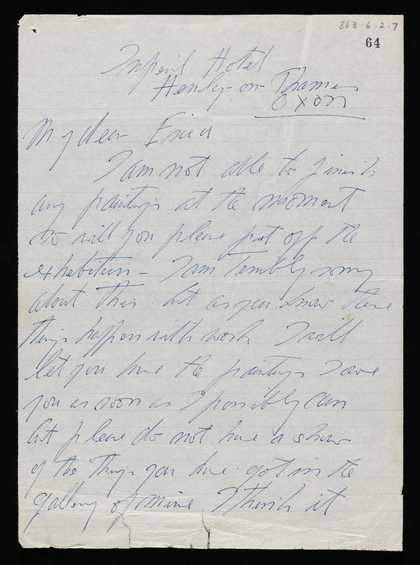 863-6-2-7
64
Imperil Hotel
Henley-on Thames
OXON
My dear Erica
I am not able to finish
any paintings at the moment
so will you please put off the
exhebition - I am Terribly sorry
about this but as you know these
things happen with work I will
let you have the paintings I owe
you as soon as I possibly can
but please do not have a show
of the things you have got in the
gallery of mine I think it